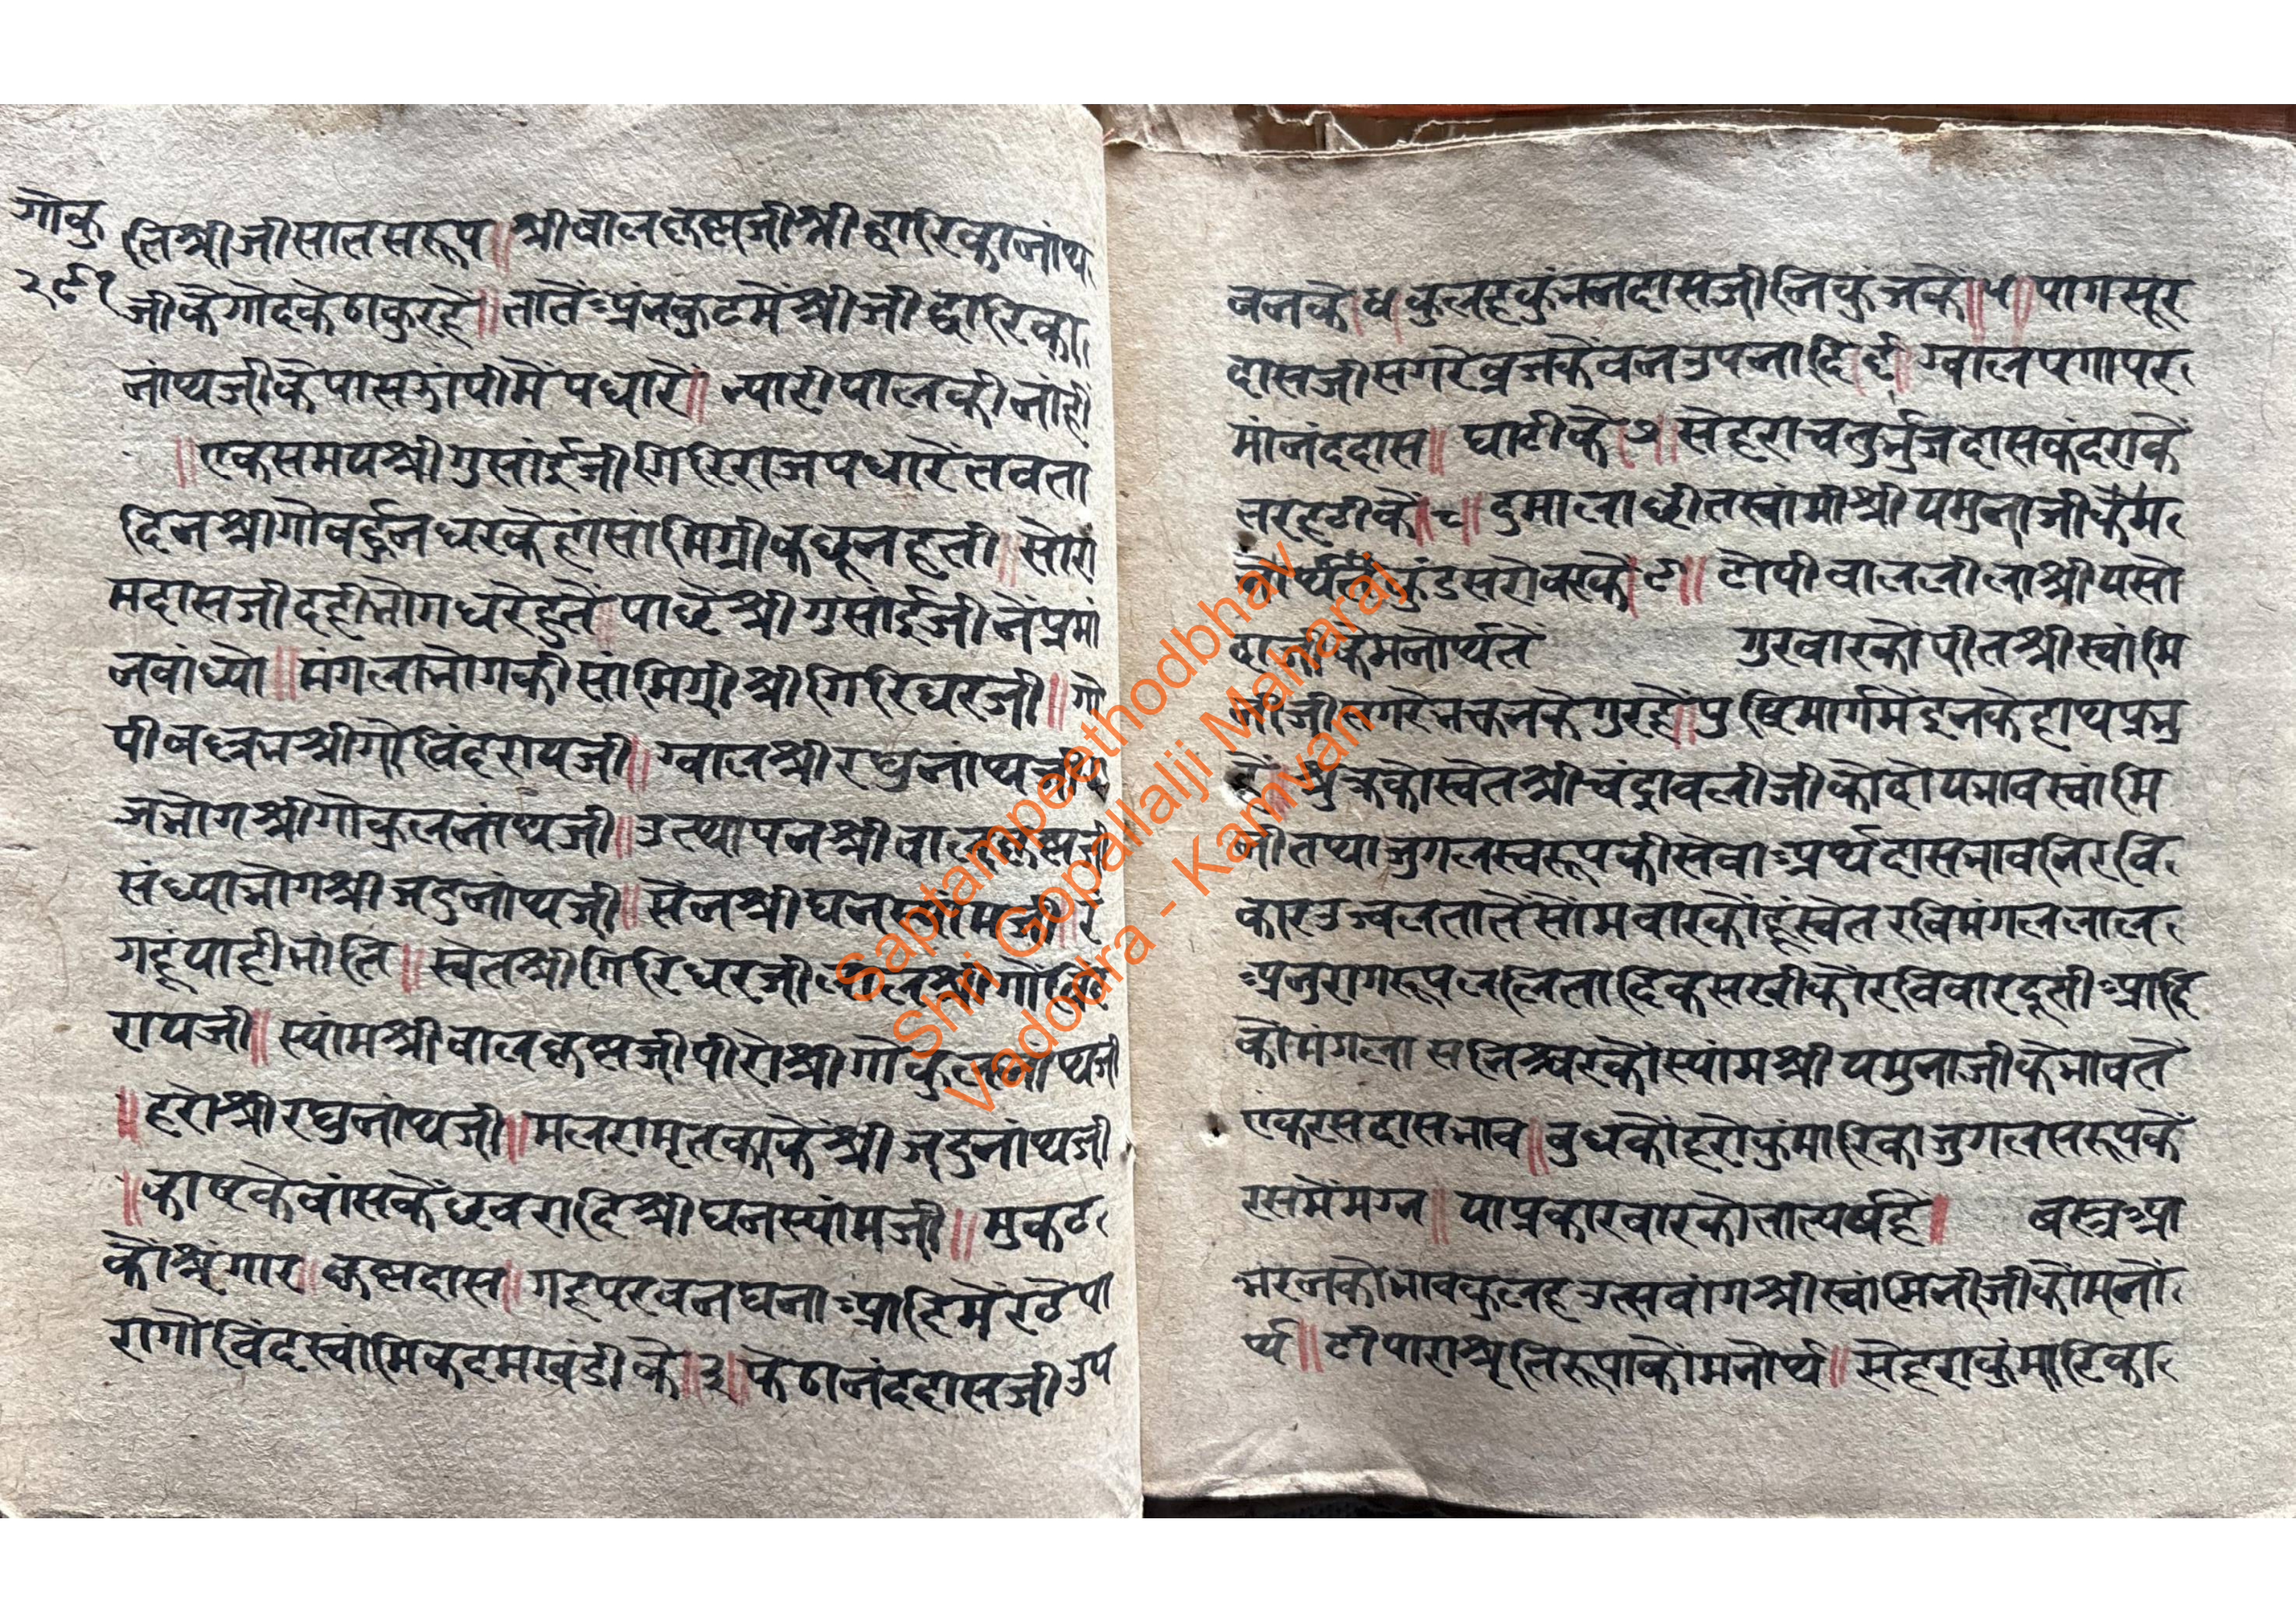 गोकु
२९१
तिश्रीजीसातसरूप॥श्रीबालकृष्णजीश्रीद्वारिकानांथ
जीकेगोदकेठाकुरहे॥तातेंअंनकुटमेंश्रीजीद्वारिका
नांथजीकेपास पधारें॥न्यारीपालकीनांहीं
॥एकसमयश्रीगुसांईजीगिरिराजपधारेंतबता
दिनश्रीगोवर्द्धनधरकेहांसांमिग्रीकछूनहती॥सोरा
मदासजीदहीभोगधरेहुतें॥पाछेंश्रीगुसांईजीनेंप्रमां
नबांध्यो॥मंगलाभोगकीसांमिग्रीश्रीगिरिधरजी॥गो
पीवल्लभश्रीगोविंदरायजी॥ग्वालश्रीरघुनांथजी
जभोगश्रीगोकुलनांथजी॥उत्थापनश्रीबालकृष्णजी
संध्याभोगश्रीजदुनांथजी॥सेंनश्रीघनस्यांमजी॥रं
गहूंयाहीभांति॥स्वेतश्रीगिरिधरजीलालश्रीगोविंद
रायजी॥स्यांमश्रीबालकृष्णजीपीरोश्रीगोकुलनांथजी
॥हरोश्रीरघुनांथजी॥मलरामृतकाकेंश्रीजदुनांथजी
॥काष्टकेबांसकें श्रीघनस्यांमजी॥मुकट
कोश्रृंगार॥कृष्णदास॥गहूपरवनघनाआदिमेंरठेपा
रागोविंदस्वांमिकदमखंडीके॥३॥फेंठानंददासजीउप
बनके॥४॥कुलहकुंभनदासजीनिकुंजके॥५॥पागसूर
दासजीसगरेव्रजकेंवनउपनादि॥६॥ग्वालपगापर
मांनंददास॥घाटीके॥७॥सेहराचतुर्भुजदासकंदराकें
तरहटीकें॥८॥दुमालाछीतस्वांमीश्रीयमुनाजीकेंम
नोर्थतें कुंडसरोवरकें॥९॥टोपीबाललीलाश्रीयसो
दाजीकेमनोर्थतें गुरवारकोंपीतश्रीस्वांमि
नीजीसगरेभक्तनकेगुरहे॥पुष्टिमार्गमेंइनकेहाथप्रभु
हें॥शुक्रकोस्वेतश्रीचंद्रावलीजीकोदोयभावस्वांमि
नीतथाजुगलस्वरूपकीसेवाअर्थदासभावनिरवि
कारउज्वलतातेंसोंमवारकोंहूंस्वेतरविमंगललाल
अनुरागरूपललितादिकसखीकोंरविवारदूतीआदि
कोंमंगलासनिश्चरकोंस्यांमश्रीयमुनाजीकेभावतें
एकरसदासभाव॥बुधकोंहरोकुंमारिकाजुगलसरूपकें
रसमेंमग्न॥याप्रकारवारकोतात्पर्यहे॥ बस्त्रआ
भरनकोभावकुलहउत्सवांगश्रीस्वांमिनीजीकोंमनों
र्थ॥टीपाराश्रृतिरूपाकोंमनोर्थ॥सेहराकुंमारिका
Saptampeethodbhav
Shri Gopallalji Maharaj
Vadodra - Kamvan